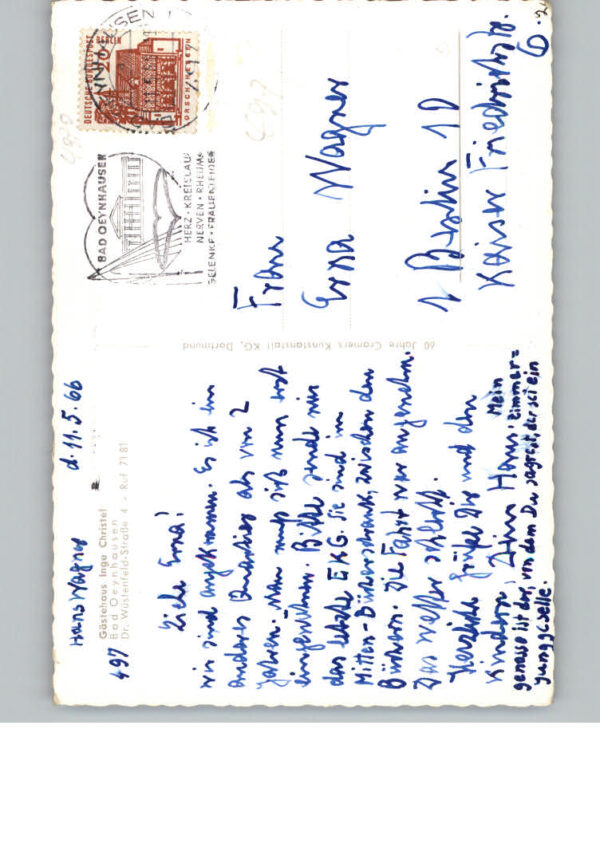 Hans Wagner
d. 11.5.66
497
Gästehaus Inge Christel
Bad Oeynhausen
Dr. Wüstenfeld-Straße 4 - Ruf 7181
Liebe Erna!
wir sind angekommen. Es ist ein
anderes Quartier als vor 2
Jahren. Man muß sich nun erst
eingewöhnen. Bitte sende mir
das letzte EKG. Sie sind im
Mitten-Bücherschrank, zwischen den
Büchern. Die Fahrt war angenehm.
Das Wetter schlecht.
Herzliche Grüße Dir und den
Kindern, Dein Hans. Mein Zimmer=
genosse ist der, von dem Du sagtest, der sei ein
Junggeselle.
60 Jahre Cramers Kunstanstalt KG, Dortmund
DEUTSCHE BUNDESPOST
BERLIN
20
LORSCH/HESSEN
OEYNHAUSEN
BAD OEYNHAUSEN
HERZ · KREISLAUF
NERVEN · RHEUMA
GELENKE · FRAUENLEIDEN
Frau
Erna Wagner
1 Berlin 10
Kaiser Friedrichstr.
6